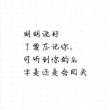 明明说好
了要忘记你，
可听到你的名
字是还是会回头